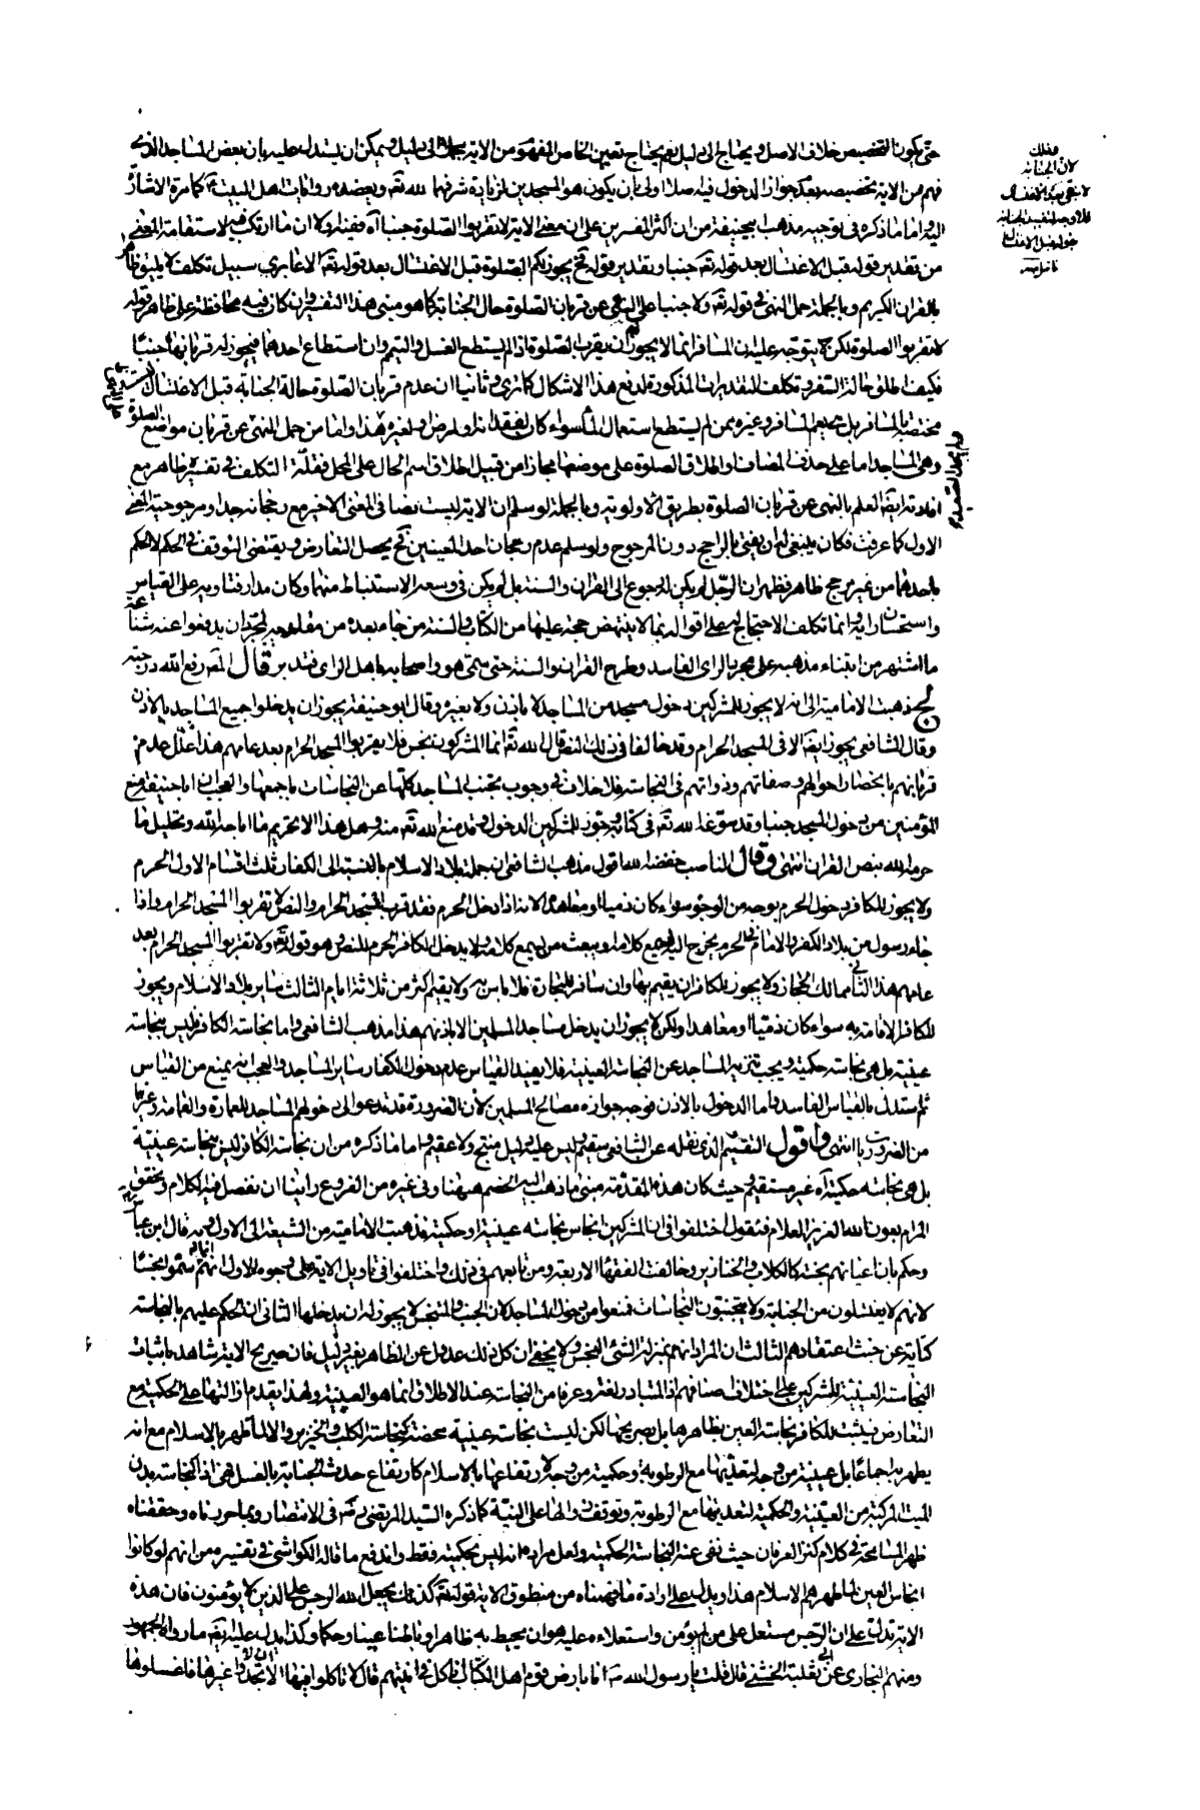 حتى يكون التخصيص خلاف الاصل ويحتاج الى دليل نعم يحتاج تعيين الخاص المفهوم من الاية مجملا الى دليل ويمكن ان يستدل عليه بان بعض المساجد الذي
فهم من الاية تخصيصه بعدم جواز الدخول فيه اصلا اولى بان يكون هو المسجدين لزيادة شرفهما لله تعه ويعضده روايات اهل البيت كما مرة الاشارة
اليه واما ما ذكره في توجيه مذهب ابيحنيفة من ان اكثر المفسرين على ان معنى الاية لا تقربوا الصلوة جنبا آه ففيه اولا ان ما ارتكب فيه لاستقامة المعنى
من تقدير قوله قبل الاغتسال بعد قوله تعه جنبا وتقدير قوله فح يجوز لكم الصلوة قبل الاغتسال بعد قوله تعه الا عابري سبيل تكلف لا يليق ظاهرا
بالقران الكريم وبالجملة حمل النهى في قوله تعه ولا جنبا على النهى عن قربان الصلوة حال الجنابة كما هو مبنى هذا التفسير وان كان فيه محافظة على ظاهر قوله
لا تقربوا الصلوة لكن ح يتوجه عليه ان المسافر انما لا يجوز ان يقرب الصلوة اذا لم يستطع الغسل والتيمم وان استطاع احدهما فيجوز له قربانها جنبا
فكيف اطلق حالة السفر وتكلف التقديرات المذكورة لدفع هذا الاشكال كما ترى وثانيا ان عدم قربان الصلوة حالة الجنابة قبل الاغتسال
مختصة بالمسافر بل يعم المسافر وغيره ممن لم يستطع استعمال الماء سواء كان لفقدانه او لمرض او لغيره هذا واما من حمل النهى عن قربان مواضع الصلوة
وهي المساجد اما على حذف المضاف او اطلاق الصلوة على موضعها مجازا من قبيل اطلاق اسم الحال على المحل فقلة التكلف في تفسيره ظاهر مع
افادته ايضه العلم بالنهى عن قربان الصلوة بطريق الاولوية وبالجملة لو سلم ان الاية ليست نصا في المعنى الاخير مع رجحانه جدا ومرجوحية المعنى
الاول كما عرفت فكان ينبغي له ان يفتي بالراجح دون المرجوح ولو سلم عدم رجحان احد المعنيين فح يحصل التعارض ويقتضي التوقف في الحكم لا الحكم
باحدهما من غير مرجح ظاهر فظهر ان الرجل لم يكن له رجوع الى القران والسنة بل لم يكن في وسعه الاستنباط منهما وكان مدار فتاويه على القياس
واستحسان رايه وانما تكلف الاحتجاج له على اقواله بما لا ينتهض حجة عليها من الكتاب والسنة من جاء بعده من مقلديه لمجرد ان يدفعوا عنه شناعة
ما اشتهر من ابتناء مذهبه على مجرد الراى الفاسد وطرح القران والسنة حتى سمى هو واصحابه باهل الراى فتدبر قال المصه رفع الله درجته
لج ذهبت الامامية الى انه لا يجوز للمشركين دخول مسجد من المساجد لا باذن ولا بغيره وقال ابو حنيفة يجوز ان يدخلوا جميع المساجد بالاذن
وقال الشافعي يجوز ايضه الا في المسجد الحرام وقد خالفا في ذلك النص قال الله تعه انما المشركون نجس فلا يقربوا المسجد الحرام بعد عامهم هذا علل عدم
قربانهم بانحصار احوالهم وصفاتهم وذواتهم في النجاسة فلا خلاف في وجوب تجنب المساجد كلها عن النجاسات باجمعها والعجب ان ابا حنيفة منع
المؤمنين من دخول المسجد جنبا وقد سوغه الله تعه في كتابه وجوز للمشركين الدخول وقد منع الله تعه منه وهل هذا الا تحريم ما اباحه الله وتحليل ما
حرمه الله بنص القران انتهى وقال الناصب خفضه الله اقول مذهب الشافعي ان جملة بلاد الاسلام بالنسبة الى الكفار ثلث اقسام الاول الحرم
ولا يجوز للكافر دخول الحرم بوجه من الوجوه سواء كان ذميا او معاهدا لانه اذا دخل الحرم فقد قرب المسجد الحرام والنص لا تقربوا المسجد الحرام واذا
جاء رسول من بلاد الكفر والامام في الحرم يخرج اليه ليسمع كلامه او يبعث من يسمع كلامه ولا يدخل الكافر الحرم للنص وهو قوله تعه ولا تقربوا المسجد الحرام بعد
عامهم هذا الثاني ممالك الحجاز ولا يجوز للكافر ان يقيم بها وان سافر للتجارة فلا باس به ولا يقيم اكثر من ثلاثة ايام الثالث ساير بلاد الاسلام ويجوز
للكافر الاقامة به سواء كان ذميا او معاهدا ولكن لا يجوز ان يدخل مساجد المسلمين الا باذنهم هذا مذهب الشافعي واما نجاسة الكافر فليس بنجاسة
عينية بل هي نجاسة حكمية ويجب تنزيه المساجد عن النجاسة العينية فلا يفيد القياس عدم دخول الكفار ساير المساجد والعجب انه يمنع من القياس
ثم يستدل بالقياس الفاسد واما الدخول بالاذن فوجه جوازه مصالح المسلمين لان الضرورة قد تدعو الى دخولهم المساجد للعمارة والقامة وغيرها
من الضرورات انتهى واقول التقسيم الذي نقله عن الشافعي سقيم ليس عليه دليل منتج ولا عقيم واما ما ذكره من ان نجاسة الكافر ليس بنجاسة عينية
بل هي نجاسة حكمية آه غير مستقيم وحيث كان هذه المقدمة مبنى ما ذهب اليه الخصم ههنا وفي غيره من الفروع راينا ان نفصل فيه الكلام ونحقق
المرام بعون الله العزيز العلام فنقول اختلفوا في ان المشركين انجاس نجاسة عينية او حكمية فذهبت الامامية من الشيعة الى الاول وبه قال ابن عباس
وحكم بان اعيانهم نجسة كالكلاب والخنازير وخالفت الفقهاء الاربعة ومن تابعهم في ذلك واختلفوا في تاويل الاية على وجوه الاول انهم انما سموا نجسا
لانهم لا يغتسلون من الجنابة ولا يجتنبون النجاسات فمنعوا من دخول المساجد لان الجنب والمتنجس لا يجوز له ان يدخلها الثاني ان الحكم عليهم بالنجاسة
كناية عن خبث اعتقادهم الثالث ان المراد انهم بمنزلة الشئ النجس ولا يخفى ان كل ذلك عدول عن الظاهر بغير دليل فان صريح الاية شاهد باثبات
النجاسة العينية للمشركين على اختلاف اصنافهم اذ المتبادر لغة وعرفا من النجاسة عند الاطلاق انما هو العينية ولهذا يقدم ازالتها على الحكمية مع
التعارض فيثبت للكافر نجاسة العين بظاهرها بل بصريحها لكن ليست نجاسة عينية محضة كنجاسة الكلب والخنزير والا لما طهر بالاسلام مع انه
يطهر به اجماعا بل عينية من وجه لتعديتها مع الرطوبة وحكمية من وجه لارتفاعها بالاسلام كارتفاع حدث الجنابة بالغسل فهى اذا كنجاسة بدن
الميت المركبة من العينية والحكمية لتعديتها مع الرطوبة وتوقف زوالها على النية كما ذكره السيد المرتضى رضه في الانتصار وبما حررناه وحققناه
ظهر المسامحة في كلام كنز العرفان حيث نفى عنه النجاسة الحكمية ولعل مراده انه ليس بحكمية فقط واندفع ما قاله الكواشي في تفسيره من انهم لو كانوا
انجاس العين لما طهرهم الاسلام هذا ويدل على ارادة ما فهمناه من منطوق الاية قوله تعه كذلك يجعل الله الرجس على الذين لا يؤمنون فان هذه
الاية تدل على ان الرجس مستعل على من لم يؤمن واستعلاءه عليه هو ان يحيط به ظاهرا وباطنا عينا وحكما وكذا يدل عليه ايضه ما رواه الجمهور
ومنهم البخاري عن ابي ثعلبة الخشني قال قلت يا رسول الله صه انا بارض قوم اهل الكتاب افناكل في انيتهم قال لا تاكلوا فيها الا ان لا تجدوا غيرها فاغسلوها